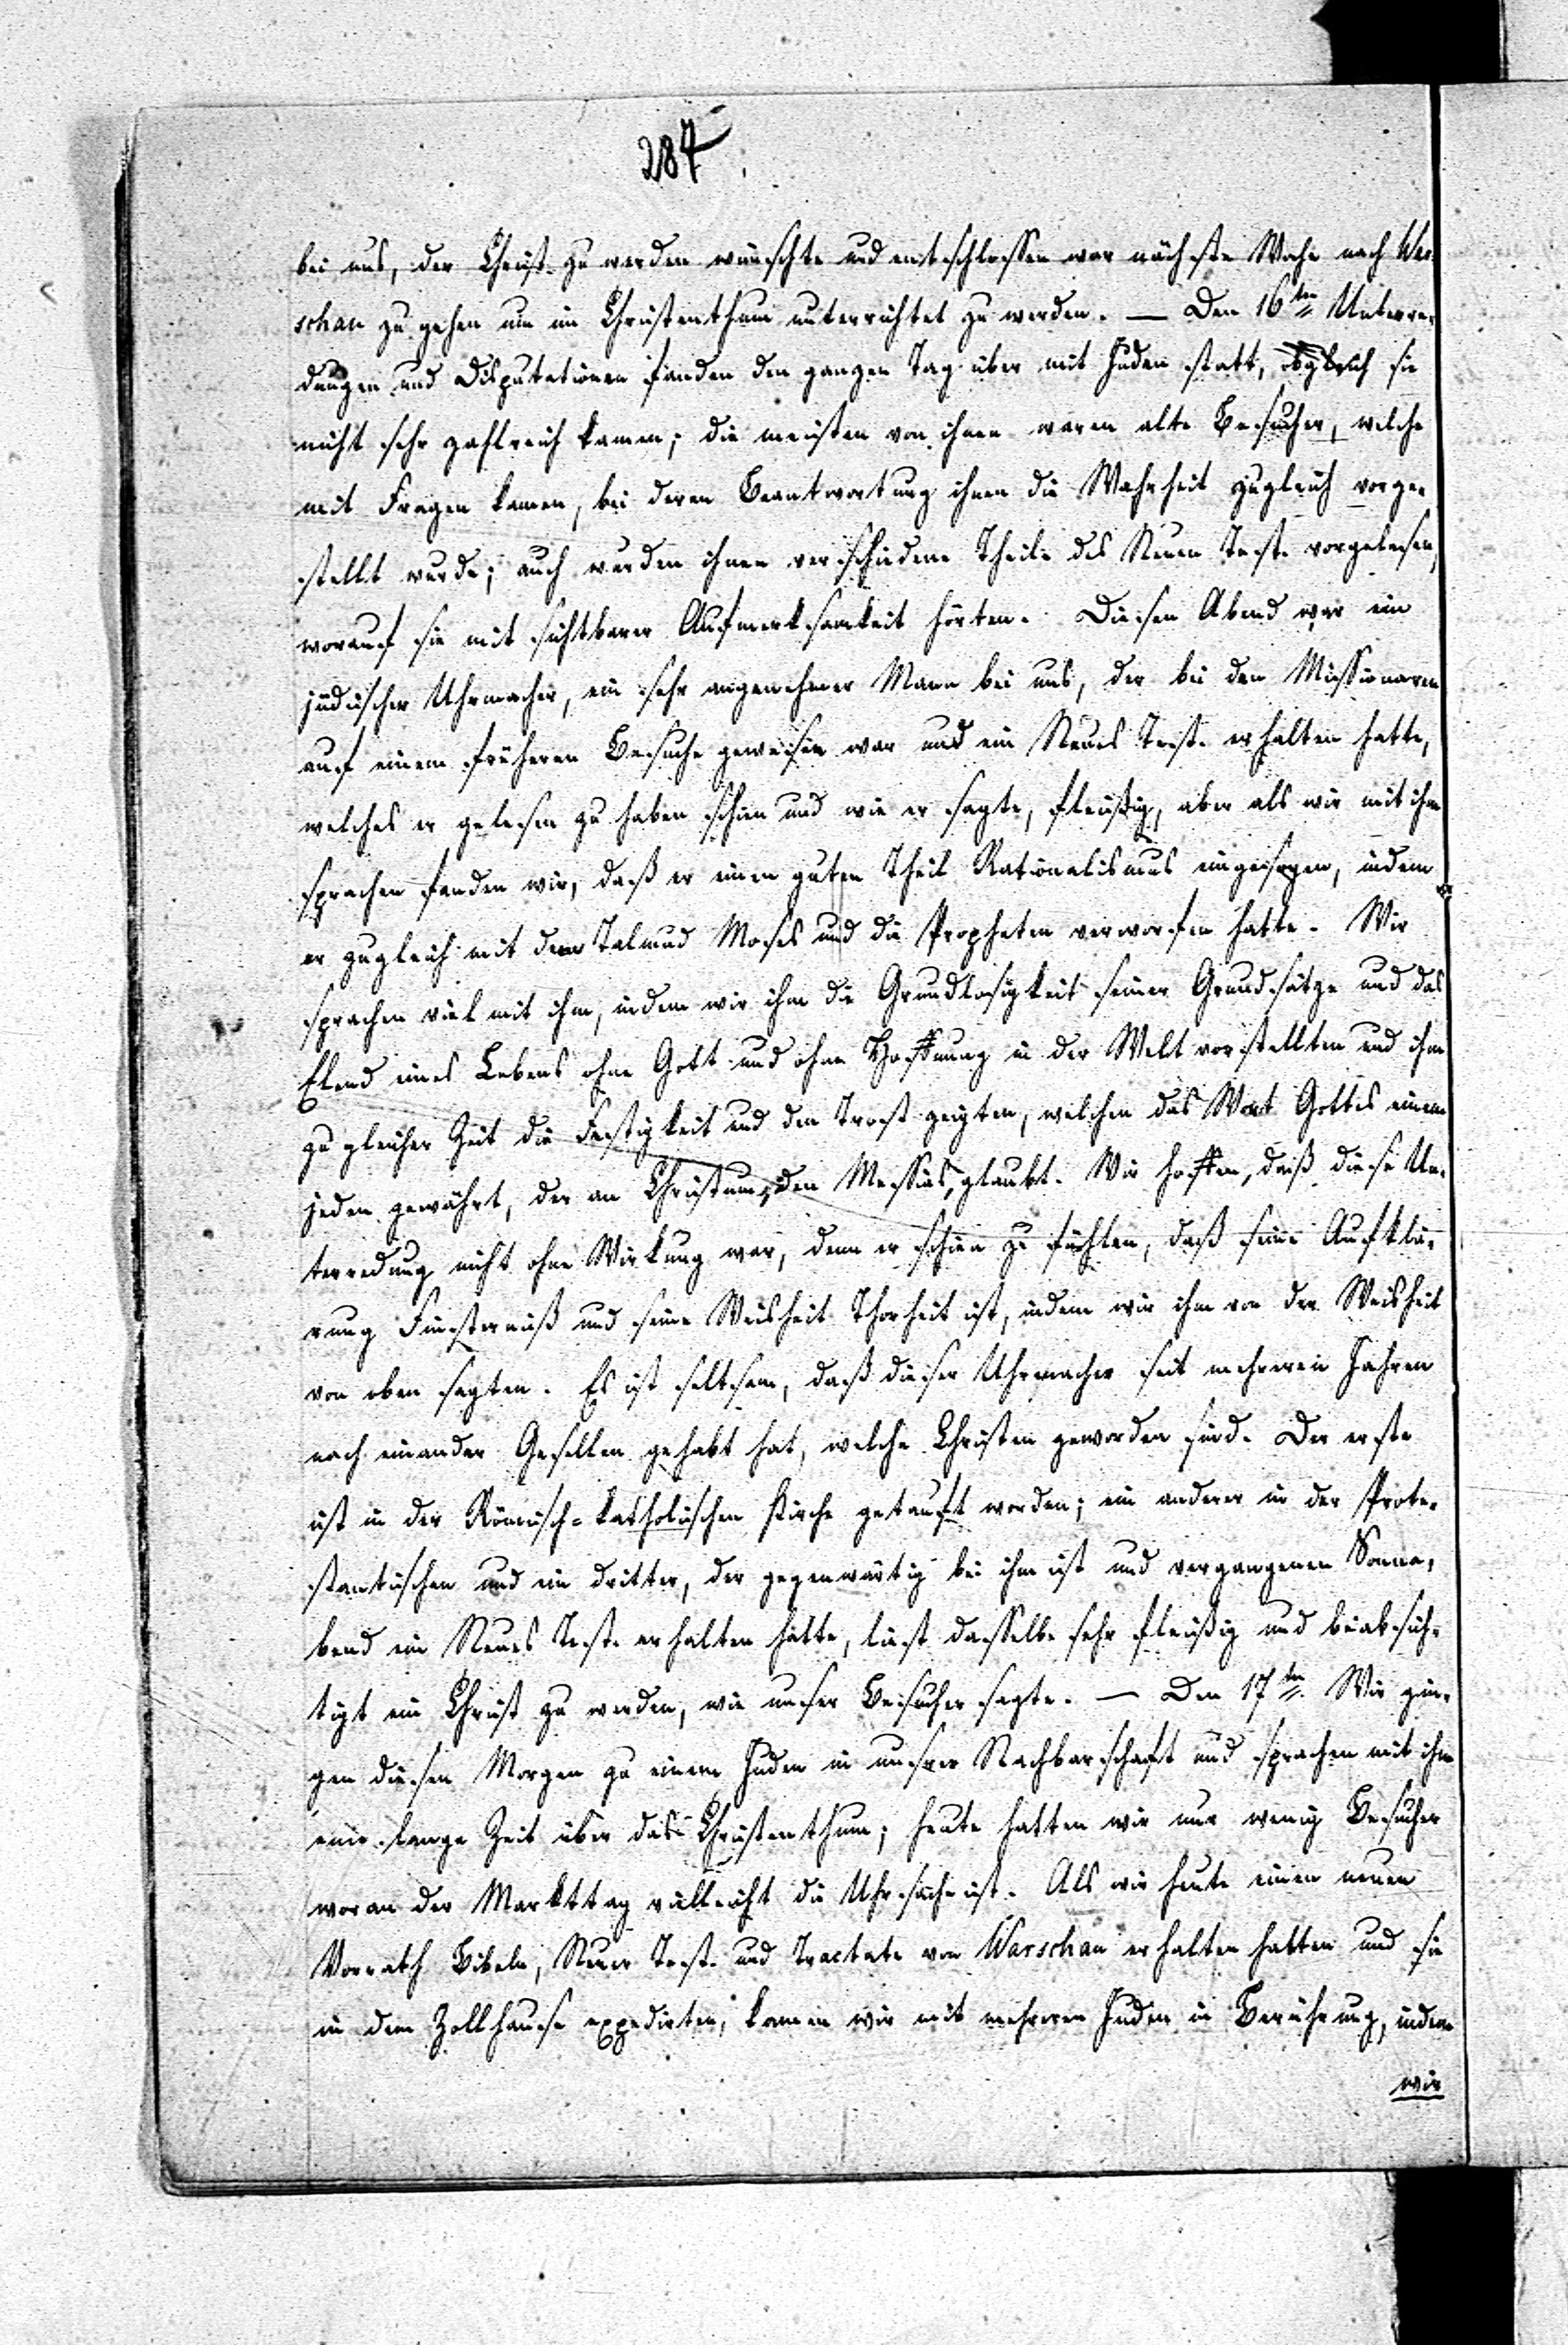 284.
bei uns, der Christ zu werden wünschte und entschlossen war nächste Woche nach War-
schau zu gehen um im Christenthum unterrichtet zu werden. — Den 16ten Unterre-
dungen und Disputationen fanden den ganzen Tag über mit Juden statt, obgleich sie
nicht sehr zahlreich kamen; die meisten von ihnen waren alte Besucher, welche
mit Fragen kamen, bei deren Beantwortung ihnen die Wahrheit zugleich vorge-
stellt wurde; auch wurden ihnen verschiedene Theile des Neuen Test. vorgelesen,
worauf sie mit sichtbarer Aufmerksamkeit hörten. Diesen Abend war ein
jüdischer Uhrmacher, ein sehr angenehmer Mann bei uns, der bei den Missionaren
auf einem früheren Besuche gewesen war und ein Neues Test. erhalten hatte,
welches er gelesen zu haben schien und wie er sagte, fleißig, aber als wir mit ihm
sprachen fanden wir, daß er einen guten Theil Rationalismus eingesogen, indem
er zugleich mit dem Talmud Moses und die Propheten verworfen hatte. Wir
sprachen viel mit ihm, indem wir ihm die Grundlosigkeit seiner Grundsätze und das
Elend eines Lebens ohne Gott und ohne Hoffnung in der Welt vorstellten und ihm
zu gleicher Zeit die Festigkeit und den Trost zeigten, welchen das Wort Gottes einem
jeden gewährt, der an Christum, den Messias, glaubt. Wir hoffen, daß diese Un-
terredung nicht ohne Wirkung war, denn er schien zu fühlen, daß seine Aufklä-
rung Finsterniß und seine Weisheit Thorheit ist, indem wir ihm von der Weisheit
von oben sagten. Es ist seltsam, daß dieser Uhrmacher seit mehreren Jahren
nach einander Gesellen gehabt hat, welche Christen geworden sind. Der erste
ist in der Römisch-katholischen Kirche getauft worden; ein anderer in der Prote-
stantischen und ein dritter, der gegenwärtig bei ihm ist und vergangenen Sonna-
bend ein Neues Test. erhalten hatte, liest dasselbe sehr fleißig und beabsich-
tigt ein Christ zu werden, wie unser Besucher sagte. — Den 17ten. Wir gin-
gen diesen Morgen zu einem Juden in unsrer Nachbarschaft und sprachen mit ihm
eine lange Zeit über das Christenthum; heute hatten wir nur wenig Besucher
woran der Markttag vielleicht die Uhrsache ist. Als wir heute einen neuen
Vorrath Bibeln, Neuer Test. und Tractate von Warschau erhalten hatten und sie
in dem Zollhause expedirten, kamen wir mit mehreren Juden in Berührung, indem
wir